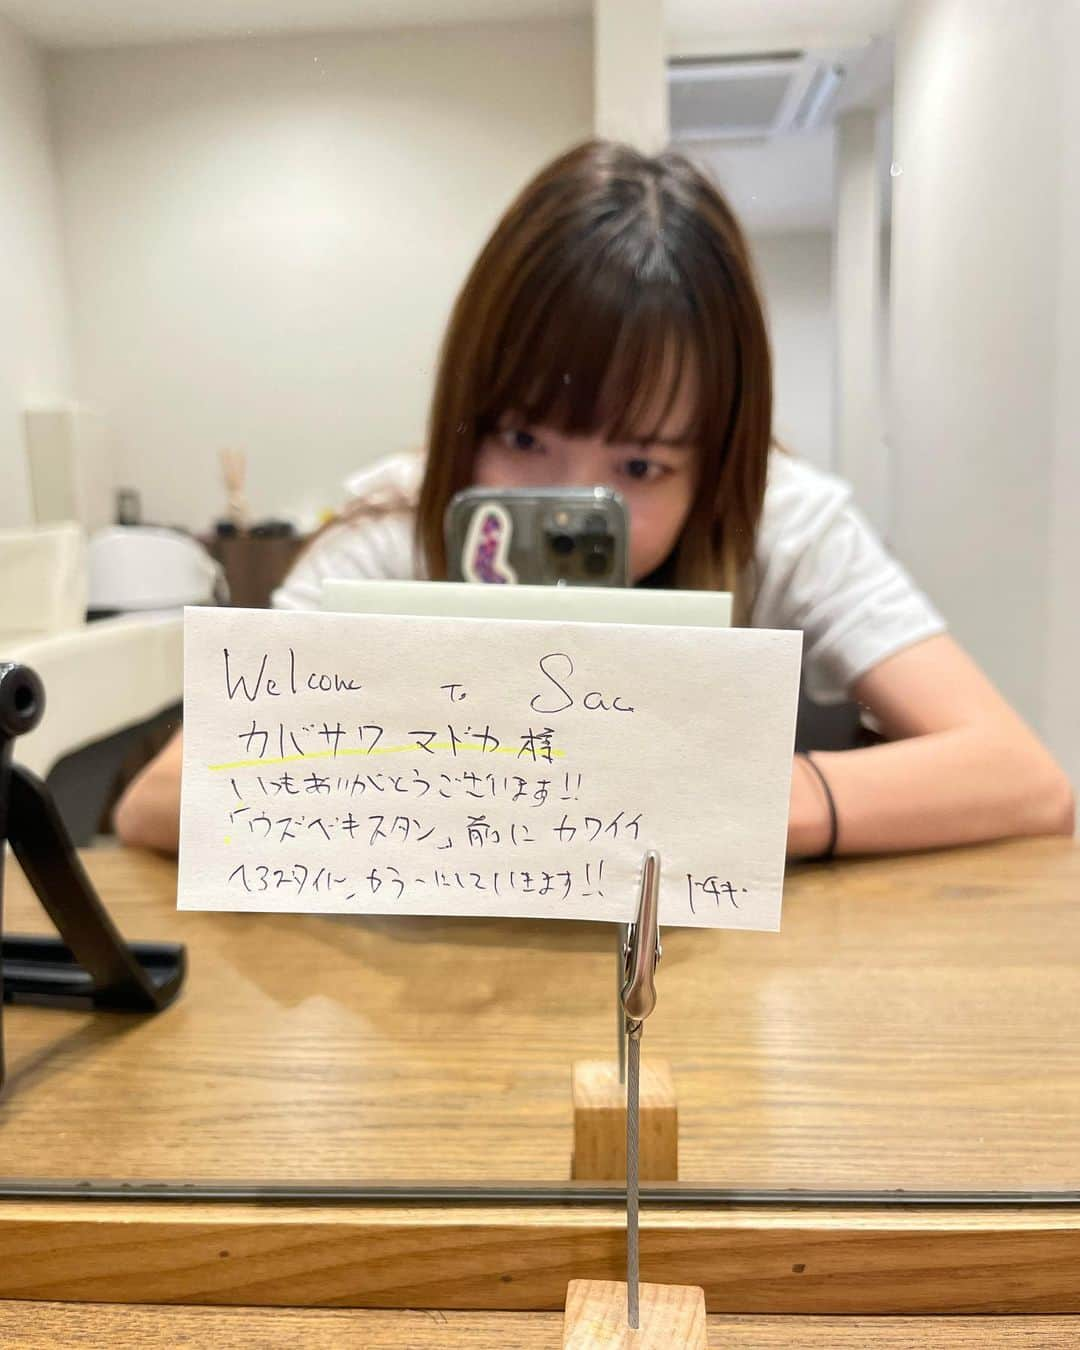 Welcome To Sac
カバサワ マドカ 様
いつもありがとうございます!!
「ウズベキスタン」前に カワイイ
ヘアスタイル、カラーにしていきます!!